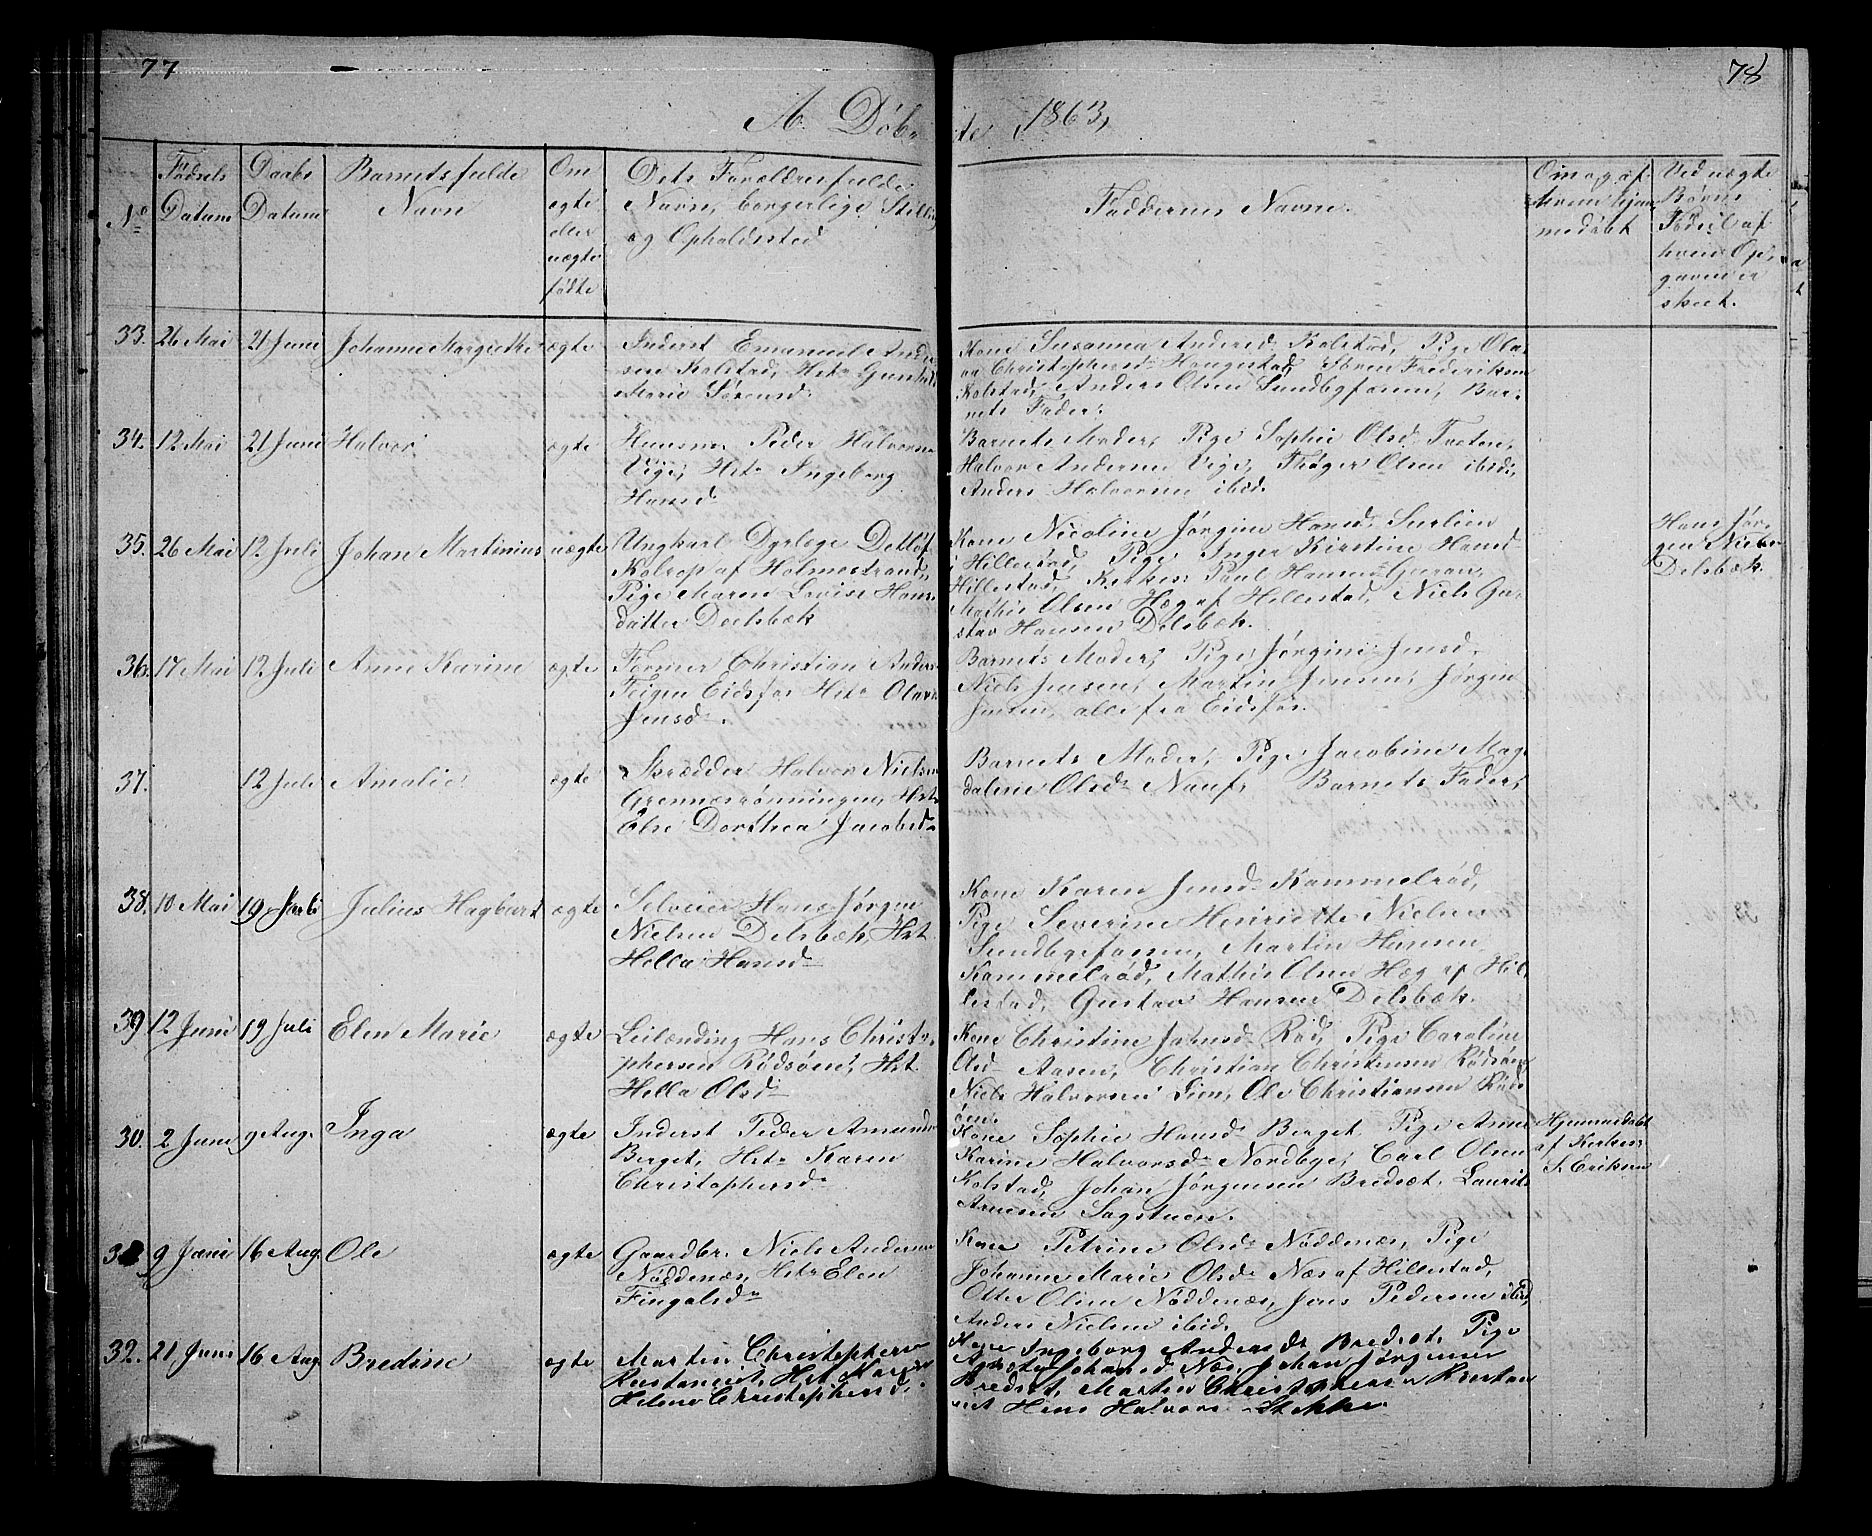 77
78
A. Døb-
te i 1863,
No
Fødsels
Datum
Daabs
Datum
Barnets fulde
Navn
Om
ægte
eller
uægte
fødte
Dets Forældres fulde
Navn, borgerlige Stilling
og Opholdssted
Faddernes Navne.
Om og af
hvem hjem-
medøbt
Ved uægte
Børns
Fader &amp; af
hvem Op-
gaven er
skeet.
33. 26 Mai 21 Juni Johanne Margrethe ægte
Inderst Emanuel Ander-
sen Kolstad, Hstr Gunhild
Marie Sørensd.
Kone Susanna Andersd. Kolstad, Pige Ola-
va Christophersd. Haugestad, Søren Frederiksen
Kolstad, Anders Olsen Sundbyfossen, Bar-
nets Fader.
34. 12 Mai 21 Juni Halvor ægte
Husm. Peder Halvorsen
Vige, Hstr Ingeborg
Hansd.
Barnets Moder, Pige Sophie Olsd. Toten,
Halvor Andersen Vige, Thøger Olsen ibid,
Anders Halvorsen ibid.
35. 26 Mai 12 Juli Johan Martinius uægte
Ungkarl Dyrlæge Detlof
Kolrop af Holmestrand,
Pige Maren Lovise Hans-
datter Doelsbæk
Kone Nicoline Jørgine Hansd.
i Hillestad, Pige Inger Kirstine Hansd.
Hillestad, Kirkes. Paul Hansen
Mathis Olsen Hæg af Hillestad, Niels Gu-
stav Hansen Delsbæk.
Hans Jør-
gen Nielsen
Delsbæk.
36. 17 Mai 12 Juli Anne Karine ægte
Former Christian Anders.
Teigen Eidsfos Hstr Olava
Jensd.
Barnets Moder, Pige Jørgine Jensd.
Niels Jensen, Martin Jensen, Jørgen
Jensen, alle fra Eidsfos.
37. 12 Juli Amalie ægte
Skrædder Halvor Nielsen
Grennesrønningen, Hstr
Else Dorthea Jacobsd.
Barnets Moder, Pige Jacobine Mag-
dalene Olsd. Nauf, Barnets Fader,
38. 10 Mai 19 Juli Julius Hagbart ægte
Selveier Hans Jørgen
Nielsen Delsbæk, Hst
Hella Hansd.
Kone Karen Jensd. Kammelrød,
Pige Severine Henriette Nielsen
Sundbyfossen, Martin Hansen
Kammelrød, Mathis Olsen Hæg af Hil-
lestad, Gustav Hansen Delsbæk.
39 12 Juni 19 Juli Elen Marie ægte
Leilænding Hans Christo-
phersen Rødsøen, Hst
Hella Olsd.
Kone Christine Johnsd. Rød, Pige Caroline
Olsd. Aasen, Christian Christensen Rødsøen,
Niels Halvorsen Lien, Ole Christiansen Røds-
øen.
30. 2 Juni 9 Aug. Inga ægte
Inderst Peder Amunds.
Berget, Hstr Karen
Christophersd.
Kone Sophie Hansd. Berget, Pige Anne
Karine Halvorsd. Nordbye, Carl Olsen
Kolstad, Johan Jørgensen Bredsæt, Laurits
Arnesen Sagstuen.
Hjemmedøbt
af Kirkes.
S. Eriksen
32 9 Juni 16 Aug. Ole ægte
Gaardbr. Niels Andersen
Nøddenæs, Hstr Elen
Fingalsd.
Kone Petrine Olsd. Nøddenæs, Pige
Johanne Marie Olsd. Næs af Hillestad,
Otter Olsen Nøddenæs, Jens Pedersen ibid,
Anders Nielsen ibid.
32. 21 Juni 16 Aug Bredine ægte
Martin Christophersen
Hst Karen
Helene Christophersd.
Kone Ingeborg Andersd. Bredsæt, Pige
Agnethe Johansd. Næs, Johan Jørgensen
Bredsæt, Martin Christophersen
Hans Halvors. Stokke